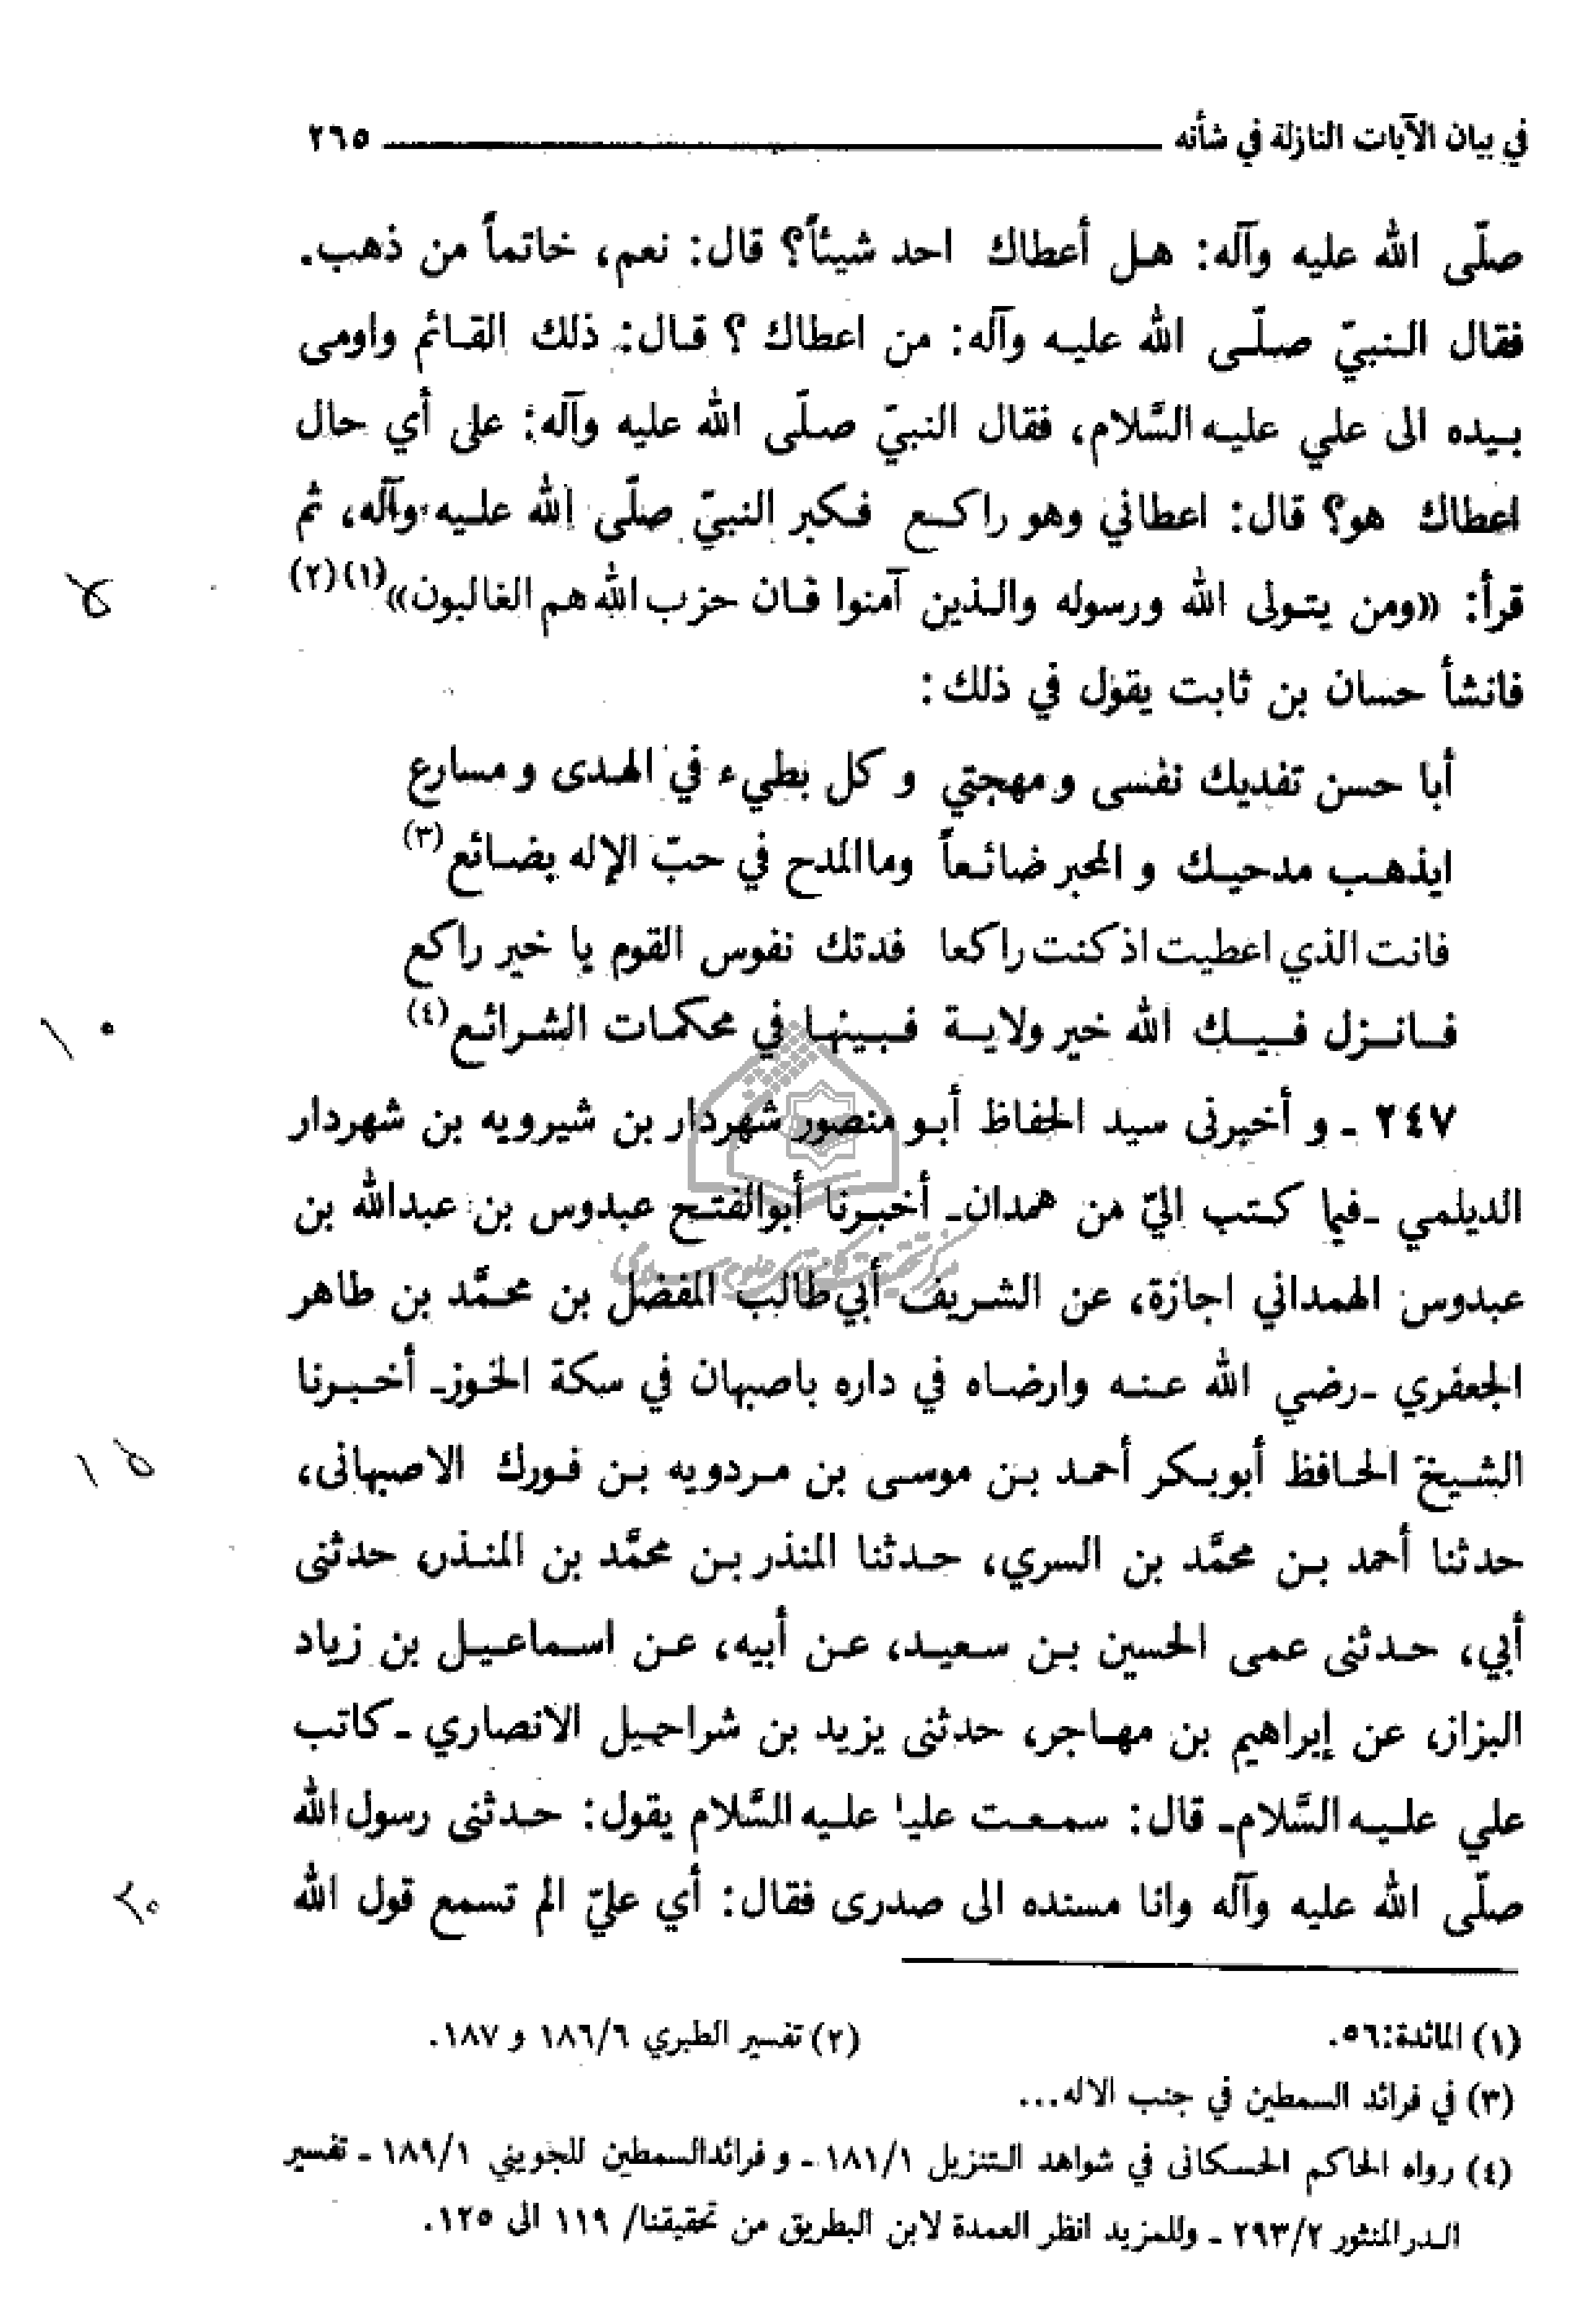 في بيان الآيات النازلة في شأنه ٢٦٥
صلّى الله عليه وآله: هل أعطاك احد شيئاً؟ قال: نعم، خاتماً من ذهب.
فقال النبيّ صلّى الله عليه وآله: من اعطاك ؟ قال: ذلك القائم واومى
بيده الى علي عليه السَّلام، فقال النبيّ صلّى الله عليه وآله: على أي حال
اعطاك هو؟ قال: اعطاني وهو راكع فكبر النبيّ صلّى الله عليه وآله، ثم
قرأ: «ومن يتولى الله ورسوله والذين آمنوا فان حزب الله هم الغالبون»(١)(٢)
٥
فانشأ حسان بن ثابت يقول في ذلك:
أبا حسن تفديك نفسى و مهجتي و كل بطيء في الهدى و مسارع
ايذهب مدحيك و المحبر ضائعاً وما المدح في حبّ الإله بضائع(٣)
فانت الذي اعطيت اذ كنت راكعا فدتك نفوس القوم يا خير راكع
فانزل فيك الله خير ولاية فبينها في محكمات الشرائع(٤)
١٠
٢٤٧ ـ و أخبرنى سيد الحفاظ أبو منصور شهردار بن شيرويه بن شهردار
الديلمي ـفيما كتب اليّ من همدان ـ أخبرنا أبوالفتح عبدوس بن عبدالله بن
عبدوس الهمداني اجازة، عن الشريف أبي طالب المفضل بن محمَّد بن طاهر
الجعفري ـرضي الله عنه وارضاه في داره باصبهان في سكة الخوزـ أخبرنا
الشيخ الحافظ أبوبكر أحمد بن موسى بن مردويه بن فورك الاصبهانى،
١٥
حدثنا أحمد بن محمَّد بن السري، حدثنا المنذر بن محمَّد بن المنذر، حدثنى
أبي، حدثنى عمى الحسين بن سعيد، عن أبيه، عن اسماعيل بن زياد
البزاز، عن إبراهيم بن مهاجر، حدثنى يزيد بن شراحيل الانصاري ـ كاتب
علي عليه السَّلام ـ قال: سمعت عليا عليه السَّلام يقول: حدثنى رسول الله
صلّى الله عليه وآله وانا مسنده الى صدرى فقال: أي عليّ الم تسمع قول الله
٢٠
(١) المائدة:٥٦. (٢) تفسير الطبري ١٨٦/٦ و ١٨٧.
(٣) في فرائد السمطين في جنب الاله...
(٤) رواه الحاكم الحسكانى في شواهد التنزيل ١٨١/١ ـ و فرائدالسمطين للجويني ١٨٩/١ ـ تفسير
الدر المنثور ٢٩٣/٢ ـ وللمزيد انظر العمدة لابن البطريق من تحقيقنا/ ١١٩ الى ١٢٥.